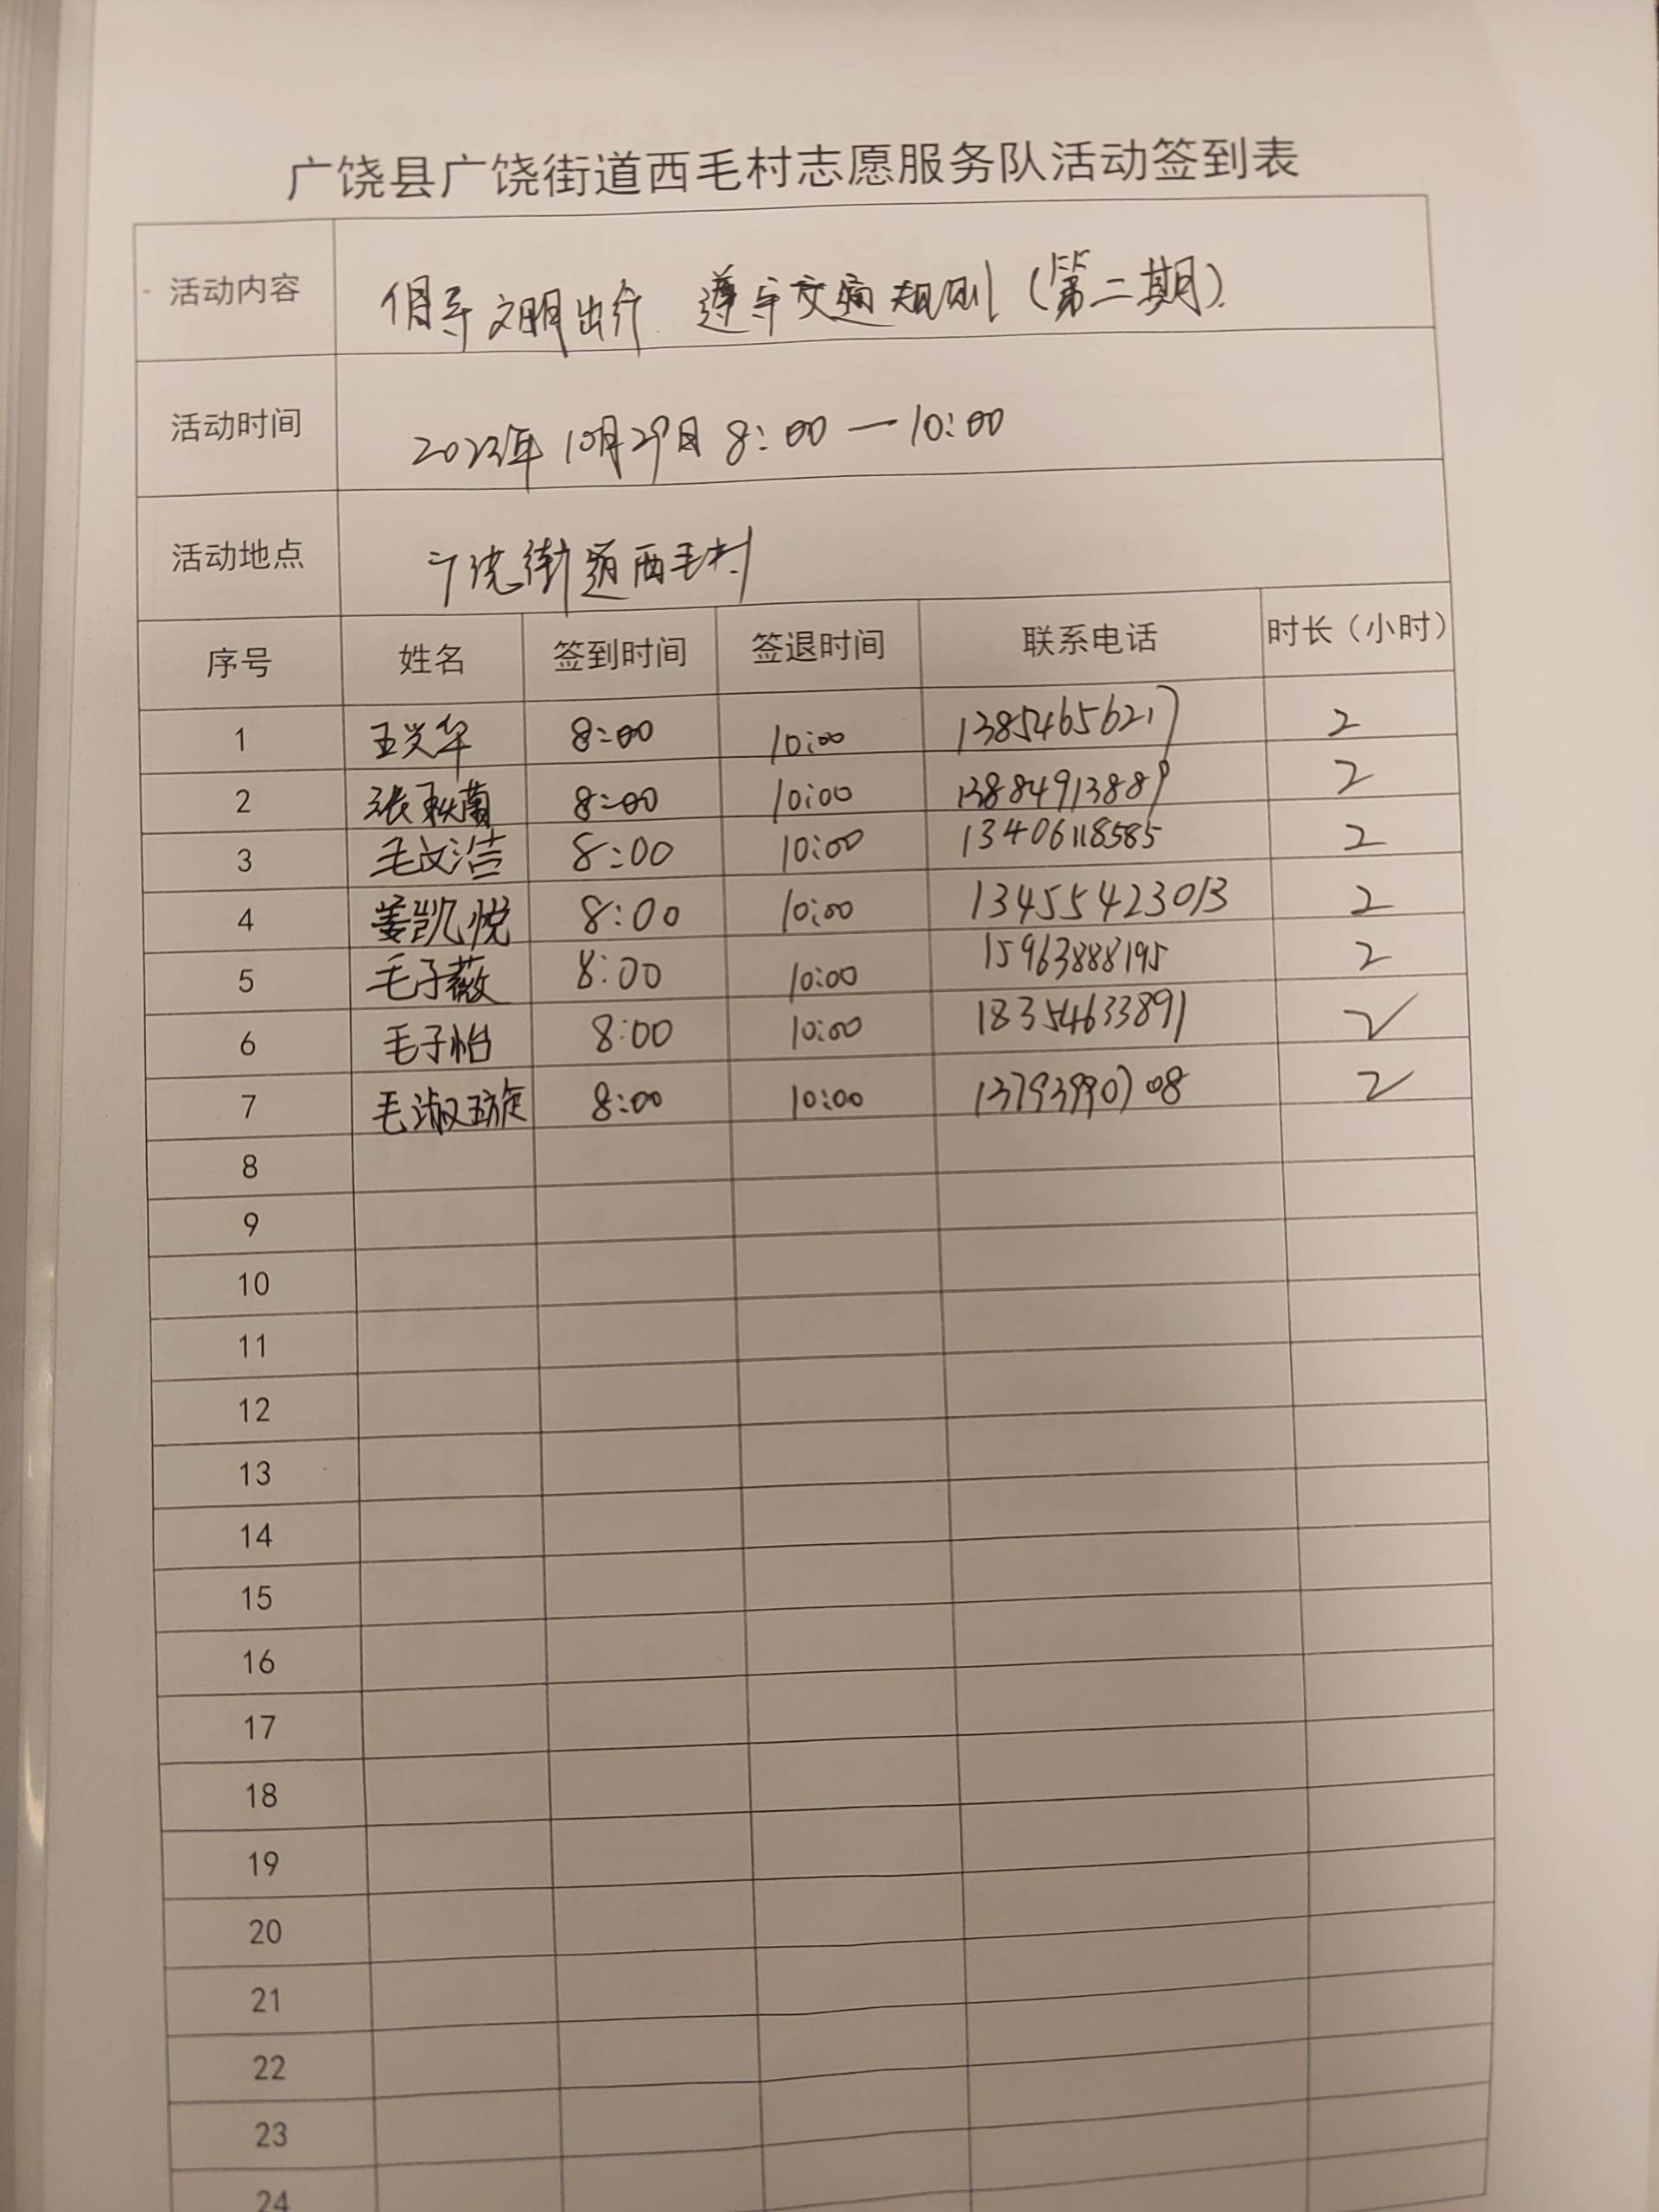 广饶县广饶街道西毛村志愿服务队活动签到表
活动内容 倡导文明出行 遵守交通规则(第二期)
活动时间 2023年10月29日 8:00—10:00
活动地点 广饶街道西毛村
序号 姓名 签到时间 签退时间 联系电话 时长（小时）
1 王兴华 8:00 10:00 13854656217 2
2 张秋菊 8:00 10:00 13884913889 2
3 毛文洁 8:00 10:00 13406118585 2
4 姜凯悦 8:00 10:00 13455423013 2
5 毛子薇 8:00 10:00 15963888195 2
6 毛子怡 8:00 10:00 18354633891 2
7 毛淑璇 8:00 10:00 13793990708 2
8
9
10
11
12
13
14
15
16
17
18
19
20
21
22
23
24